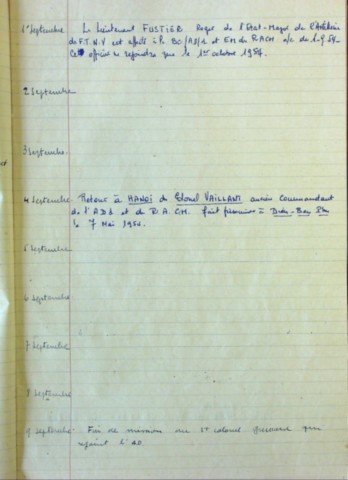 1er Septembre Le Lieutenant FUSTIER Roger de l'Etat-Major de l'Artillerie
de F.T.N.V est affecté à la BC/AD/4 et EM du RACM a/c du 1-9-54-
Cet officier ne rejoindra que le 1er octobre 1954.
2 Septembre
3 Septembre
4 Septembre - Retour à HANOI du Colonel VAILLANT ancien commandant
de l'AD4 et du R.A.C.M. fait prisonnier à Dien-Bien Phu
le 7 Mai 1954.
5 Septembre
6 Septembre
7 Septembre
8 Septembre
9 Septembre - Fin de mission du Lt colonel qui
rejoint l'AD